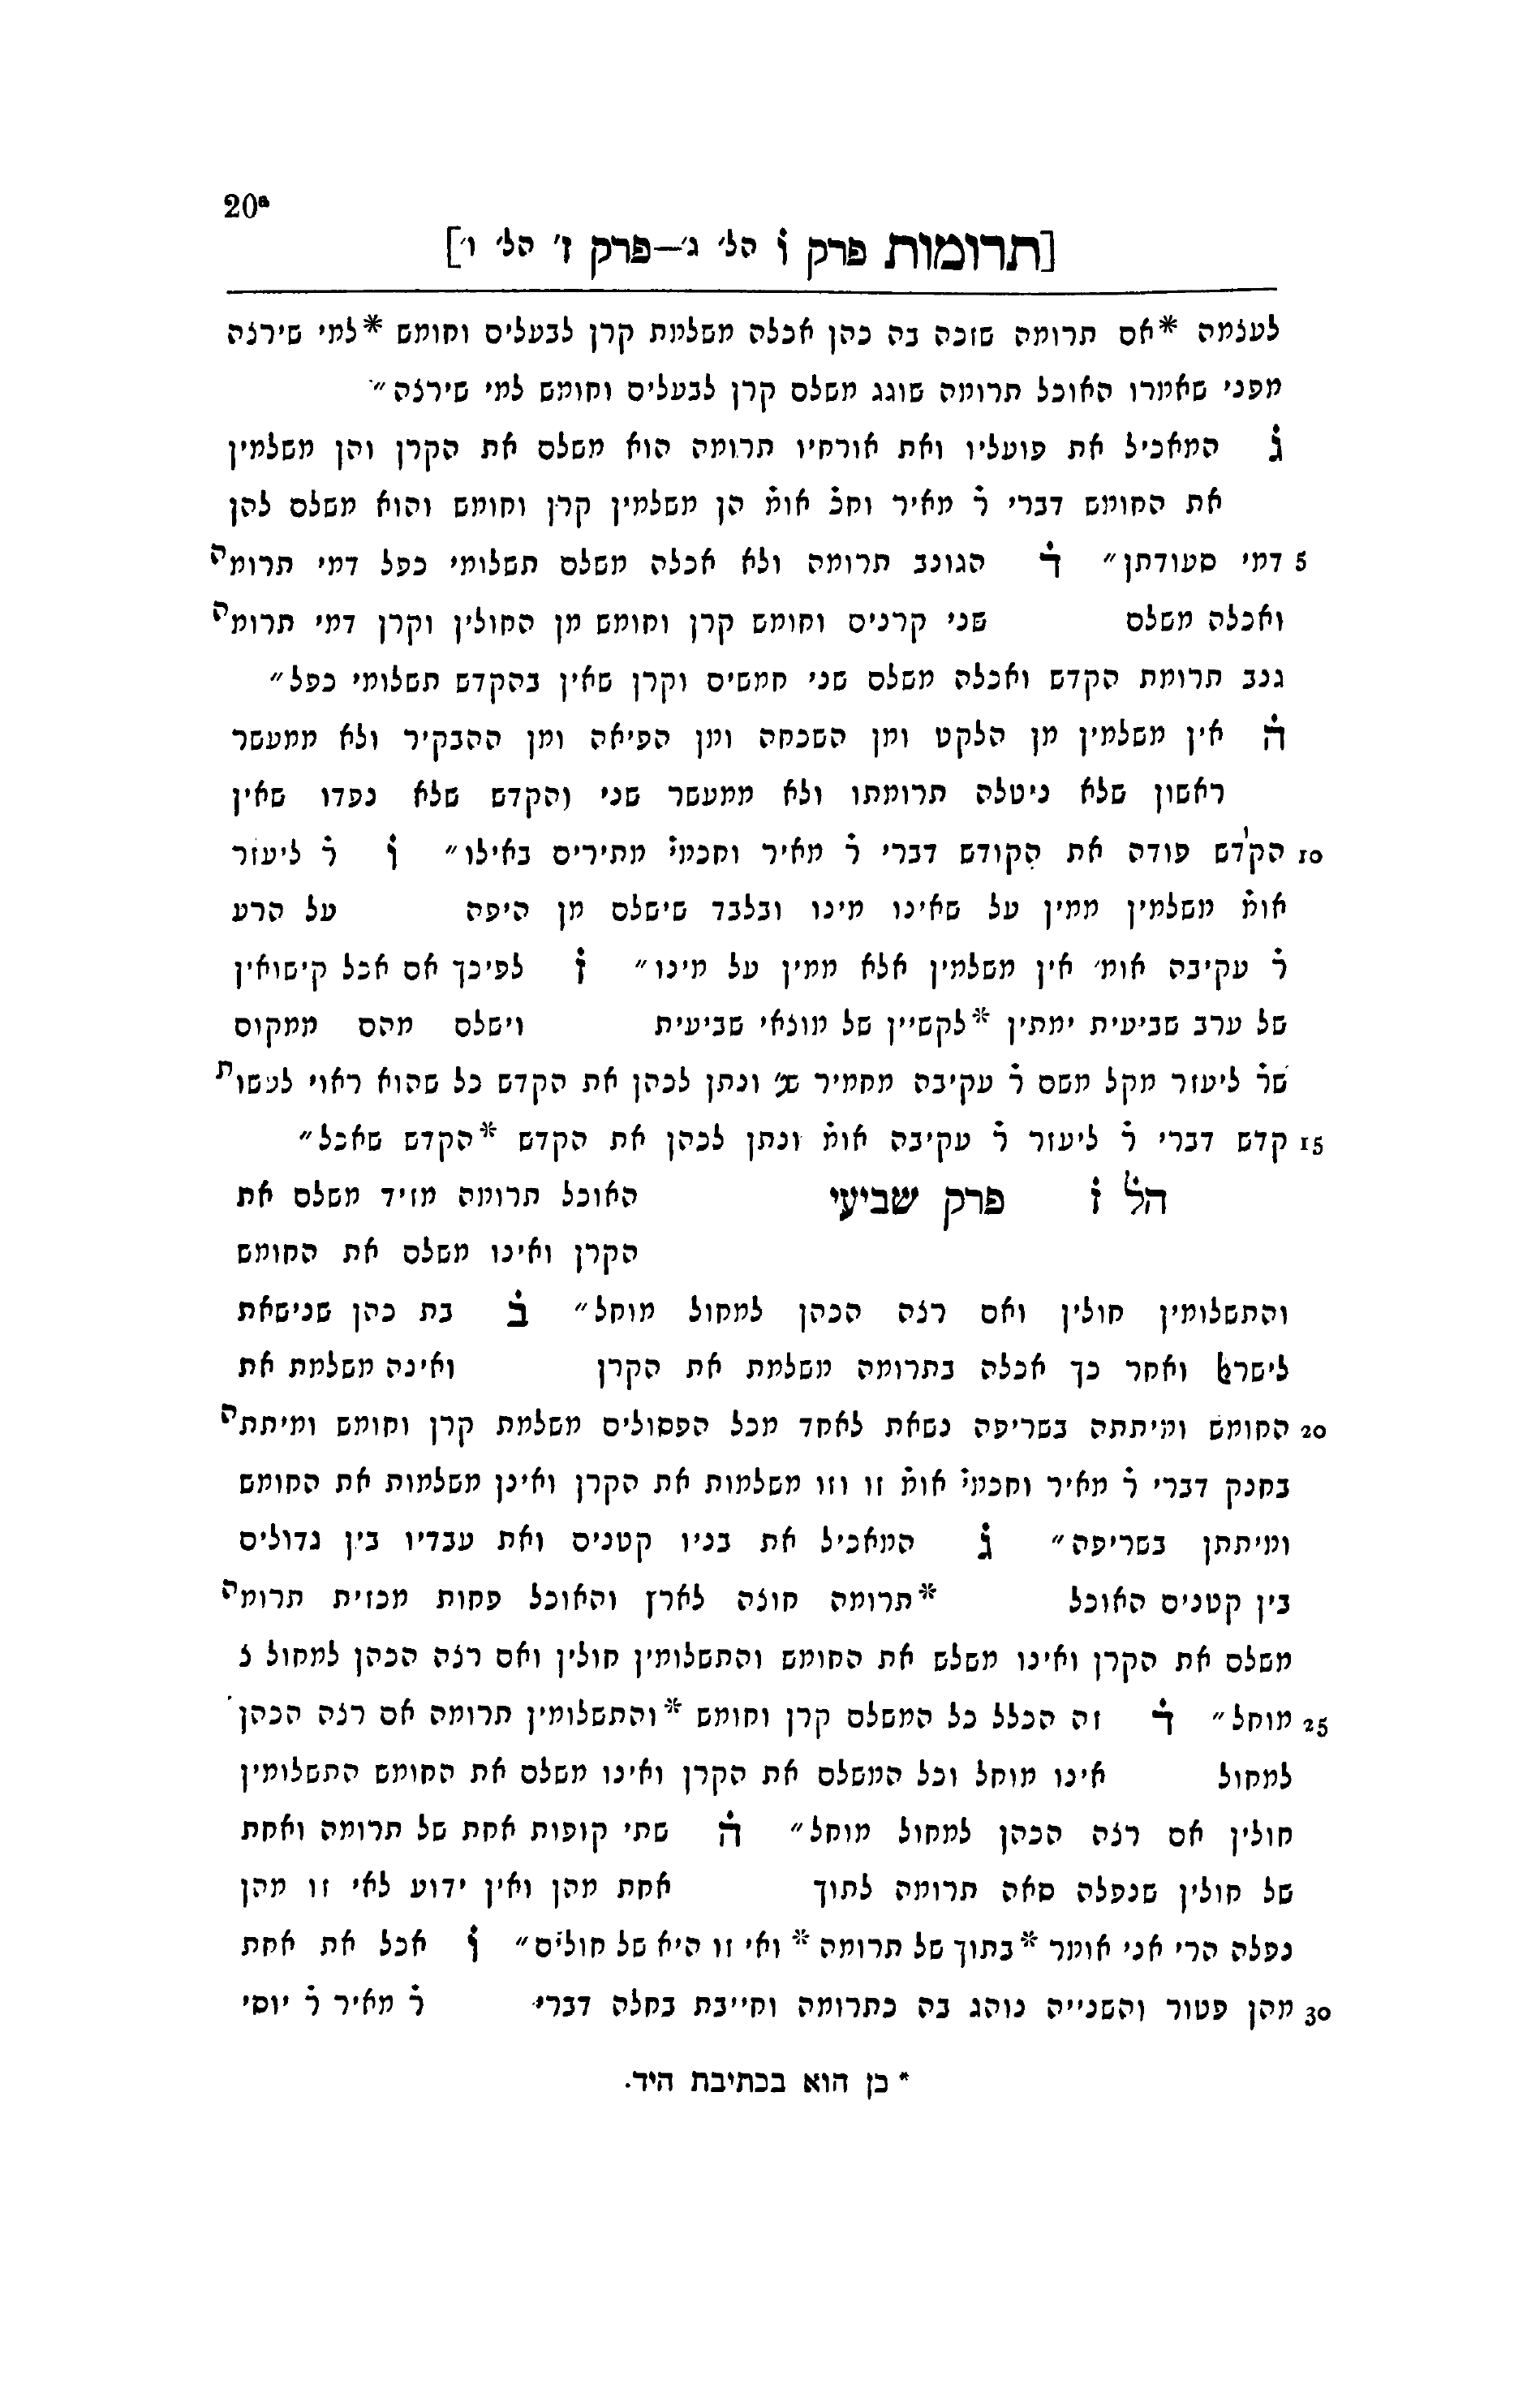 20a
[תרומות פרק ו̇ הל׳ ג׳—פרק ז׳ הל׳ ו׳]
לעצמה *אם תרומה שזכה בה כהן אכלה משלמת קרן לבעלים וחומש *למי שירצה
מפני שאמרו האוכל תרומה שוגג משלם קרן לבעלים וחומש למי שירצה״
ג̇ המאכיל את פועליו ואת אורחיו תרומה הוא משלם את הקרן והן משלמין
את החומש דברי ר̇ מאיר וחכ̇ אומ̇ הן משלמין קרן וחומש והוא משלם להן
5 דמי סעודתן״ ד̇ הגונב תרומה ולא אכלה משלם תשלומי כפל דמי תרומה
ואכלה משלם שני קרנים וחומש קרן וחומש מן החולין וקרן דמי תרומה
גנב תרומת הקדש ואכלה משלם שני חמשים וקרן שאין בהקדש תשלומי כפל״
ה̇ אין משלמין מן הלקט ומן השכחה ומן הפיאה ומן ההבקיר ולא ממעשר
ראשון שלא ניטלה תרומתו ולא ממעשר שני והקדש שלא נפדו שאין
10 הקדש פודה את הקודש דברי ר̇ מאיר וחכמי̇ מתירים באילו״ ו̇ ר̇ ליעזר
אומ̇ משלמין ממין על שאינו מינו ובלבד שישלם מן היפה על הרע
ר̇ עקיבה אומ׳ אין משלמין אלא ממין על מינו״ ז̇ לפיכך אם אכל קישואין
של ערב שביעית ימתין *לקשיין של מוצאי שביעית וישלם מהם ממקום
שר̇ ליעזר מקל משם ר̇ עקיבה מחמיר שנ׳ ונתן לכהן את הקדש כל שהוא ראוי לעשות
15 קדש דברי ר̇ ליעזר ר̇ עקיבה אומ̇ ונתן לכהן את הקדש *הקדש שאכל״
הל̇ ז̇ פרק שביעי האוכל תרומה מזיד משלם את
הקרן ואינו משלם את החומש
והתשלומין חולין ואם רצה הכהן למחול מוחל״ ב̇ בת כהן שנישאת
לישרﭏ ואחר כך אכלה בתרומה משלמת את הקרן ואינה משלמת את
20 החומש ומיתתה בשריפה נשאת לאחד מכל הפסולים משלמת קרן וחומש ומיתתה
בחנק דברי ר̇ מאיר וחכמי̇ אומ̇ זו וזו משלמות את הקרן ואינן משלמות את החומש
ומיתתן בשריפה״ ג̇ המאכיל את בניו קטנים ואת עבדיו בין גדולים
בין קטנים האוכל *תרומה חוצה לארץ והאוכל פחות מכזית תרומה
משלם את הקרן ואינו משלש את החומש והתשלומין חולין ואם רצה הכהן למחול
25 מוחל״ ד̇ זה הכלל כל המשלם קרן וחומש *והתשלומין תרומה אם רצה הכהן
למחול אינו מוחל וכל המשלם את הקרן ואינו משלם את החומש התשלומין
חולין אם רצה הכהן למחול מוחל״ ה̇ שתי קופות אחת של תרומה ואחת
של חולין שנפלה סאה תרומה לתוך אחת מהן ואין ידוע לאי זו מהן
נפלה הרי אני אומר *בתוך של תרומה *ואי זו היא של חולים״ ו̇ אכל את אחת
30 מהן פטור והשנייה נוהג בה כתרומה וחייבת בחלה דברי ר̇ מאיר ר̇ יוסי
* כן הוא בכתיבת היד.